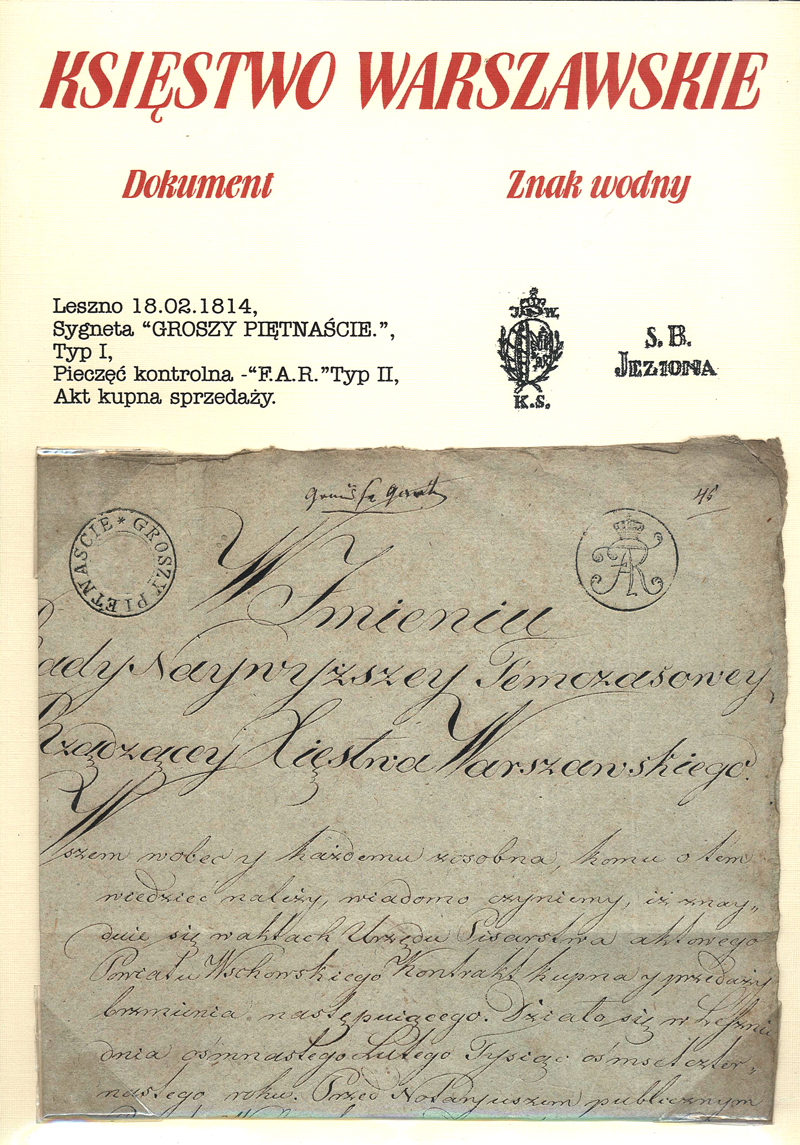 KSIĘSTWO WARSZAWSKIE
Dokument
Znak wodny
Leszno 18.02.1814,
Sygneta “GROSZY PIĘTNAŚCIE.”,
Typ I,
Pieczęć kontrolna -“F.A.R.”Typ II,
Akt kupna sprzedaży.
K.S.
S. B.
JEZIONA
46
GROSZY PIĘTNAŚCIE *
FAR
W Imieniu
Rady Naywyższey Temczasowey
Rządzącey Xięstwa Warszawskiego.
Wszem wobec y każdemu zosobna, komu o tem
wiedzieć należy, wiadomo czyniemy, iż znay„
duie się w aktach Urzędu Pisarstwa aktowego
Powiatu Wschowskiego Kontrakt kupna y przedaży
brzmienia następuiącego. Działo się w Lesznie
dnia ośmnastego Lutego Tysiąc ośmset czter„
nastego roku. Przed Notariuszem publicznym